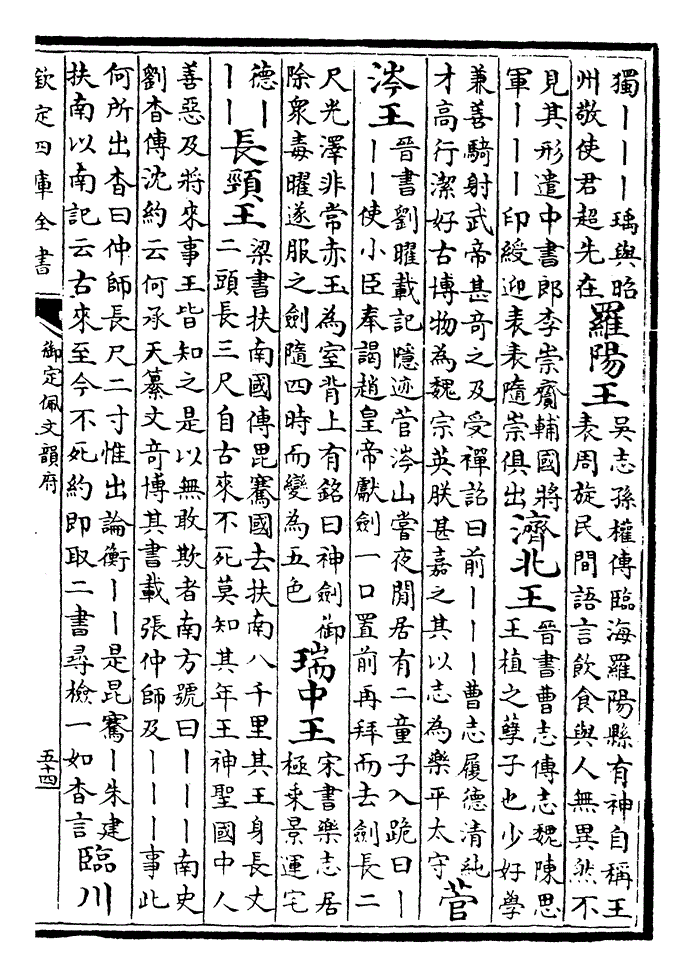 獨丨丨丨瑀與昭
州敬使君超先在
羅陽王
吳志孫權傳臨海羅陽縣有神自稱王
表周旋民間語言飲食與人無異然不
見其形遣中書郎李崇齎輔國將
軍丨丨丨印綬迎表表隨崇俱出
濟北王
晉書曹志傳志魏陳思
王植之孽子也少好學
兼善騎射武帝甚竒之及受禪詔曰前丨丨丨曹志履德清純
才高行潔好古博物為魏宗英朕甚嘉之其以志為樂平太守
菅
涔王
晉書劉曜載記隱迹菅涔山嘗夜閒居有二童子入跪曰丨
丨丨使小臣奉謁趙皇帝獻劍一口置前再拜而去劍長二
尺光澤非常赤玉為室背上有銘曰神劍御
除衆毒曜遂服之劍隨四時而變為五色
瑞中王
宋書樂志居
極乘景運宅
德丨
丨丨
長頸王
梁書扶南國傳毘騫國去扶南八千里其王身長丈
二頭長三尺自古來不死莫知其年王神聖國中人
善惡及將來事王皆知之是以無敢欺者南方號曰丨丨丨南史
劉杳傳沈約云何承天纂文竒博其書載張仲師及丨丨丨事此
何所出杳曰仲師長尺二寸惟出論衡丨丨是毘騫丨朱建
扶南以南記云古來至今不死約即取二書尋檢一如杳言
臨川
欽定四庫全書
御定佩文韻府
五十四